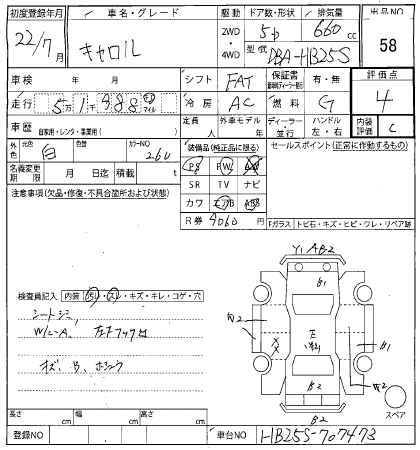 初度登録年月 車名・グレード 駆動 ドア数・形状 排気量 出品NO
22/7月 キャロル 2WD・4WD 5D 660cc 58
型式 DBA-HB25S
車検 年 月 シフト FAT 保証書 有・無 評価点
走行 5万1千988 キロ マイル 冷房 AC 燃料 G 4
車歴 自家用・レンタ・事業用( ) 定員 人 外車モデル 年 ディーラー・並行 ハンドル 左・右 内装評価 C
外色 元色 白 色替 カラーNO 26U 装備品(純正品に限る) セールスポイント(正常に作動するもの)
PS PW AW
名義変更期限 月 日迄 積載 t SR TV ナビ
注意事項(欠品・修復・不具合箇所および状態) カワ エアB ABS
R券 9060 円 Fガラス・トビ石・キズ・ヒビ・ワレ・リペア跡
Y1 AB2
B1
検査員記入 内装 汚レ・スレ・キズ・キレ・コゲ・穴
シートシミ
W/C-A
B
B1
B2
B2
スペア
長さ cm 幅 cm 高さ cm
登録NO 車台NO HB25S-707473